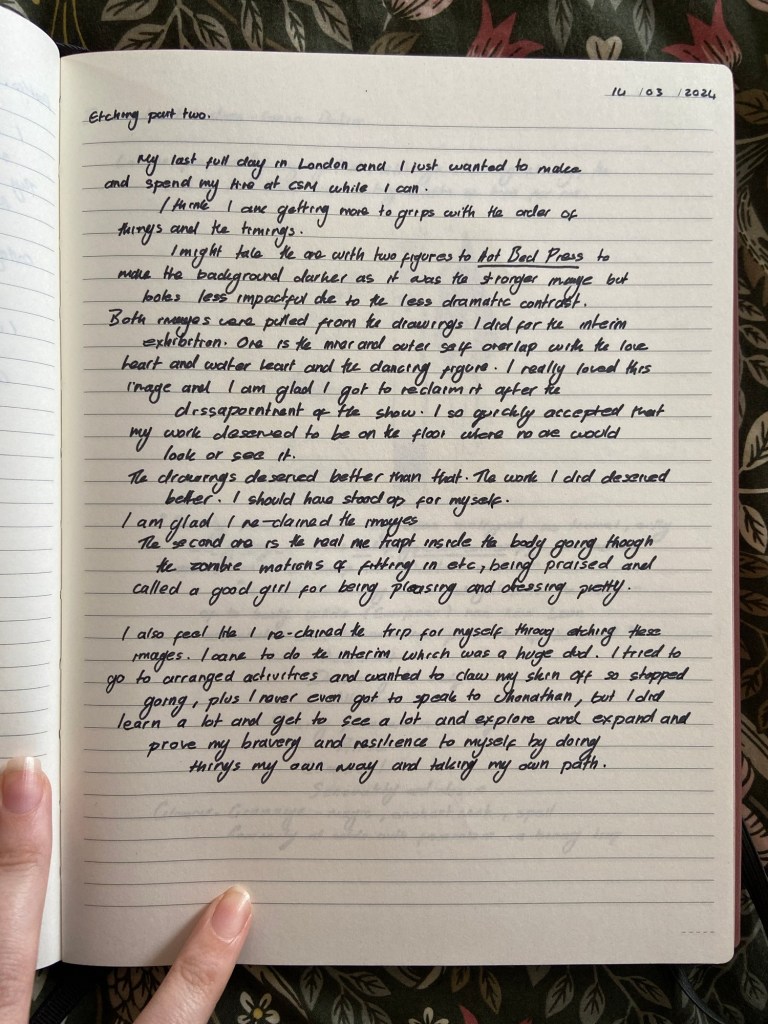 14 / 03 / 2024
Etching part two.
My last full day in London and I just wanted to make
and spend my time at CSM while I can.
I think I am getting more to grips with the order of
things and the timings.
I might take the one with two figures to Hot Bed Press to
make the background darker as it was the stronger image but
looks less impactful due to the less dramatic contrast.
Both images were pulled from the drawings I did for the interim
exhibition. One is the inner and outer self overlap with the love
heart and water heart and the dancing figure. I really loved this
image and I am glad I got to reclaim it after the
dissapointment of the show. I so quickly accepted that
my work deserved to be on the floor where no one would
look or see it.
The drawings deserved better than that. The work I did deserved
better. I should have stood up for myself.
I am glad I re-claimed the images
The second one is the real me trapt inside the body going though
the zombie motions of fitting in etc, being praised and
called a good girl for being pleasing and dressing pretty.
I also feel like I re-claimed the trip for myself throug etching these
images. I came to do the interim which was a huge dud. I tried to
go to arranged activities and wanted to claw my skin off so stopped
going, plus I never even got to speak to Jhonathan, but I did
learn a lot and get to see a lot and explore and expand and
prove my bravery and resilience to myself by doing
things my own way and taking my own path.